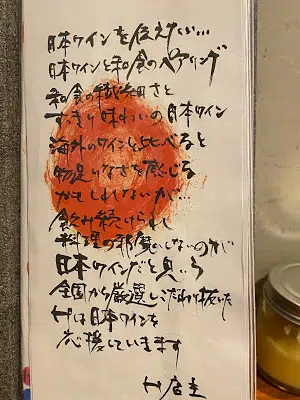 日本ワインを伝えたい…
日本ワインと和食のペアリング
和食の繊細さと
すっきり味わいの日本ワイン
海外のワインと比べると
物足りなさを感じる
かもしれないが…
飲み続けられ
料理の邪魔をしないのが
日本ワインだと思う
全国から厳選しこだわり抜いた
は日本ワインを
応援していきます
店主